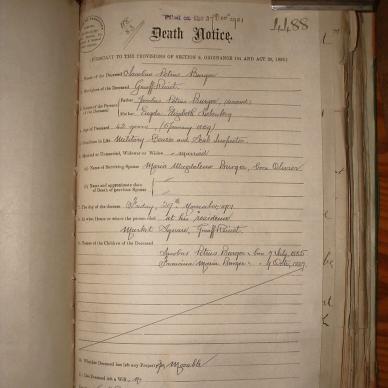 4488
Death Notice.
PURSUANT TO THE PROVISIONS OF SECTION 9, ORDINANCE 104 AND ACT 20, 1895.)
1. Name of the Deceased Jacobus Petrus Burger
2. Birthplace of the Deceased Graaff Reinet
3. Names of the Parents of the Deceased
Father Jacobus Petrus Burger,
Mother Elizabeth
4. Age of Deceased 42 years
5. Condition in Life Military and Inspector
6. Married or Unmarried, Widower or Widow married
(a) Name of Surviving Spouse Maria Magdalena Burger, born Olivier
(b) Name and approximate date of Death of previous Spouse
7. The day of the decease Friday, 29th November 1901
8. At what House or where the person died at his residence
Market Square, Graaff Reinet
9. Names of the Children of the Deceased
Jacobus Petrus Burger born 7 July 1885
Francina Maria Burger
10. Whether Deceased has left any Property Movable
11. Has Deceased left a Will No